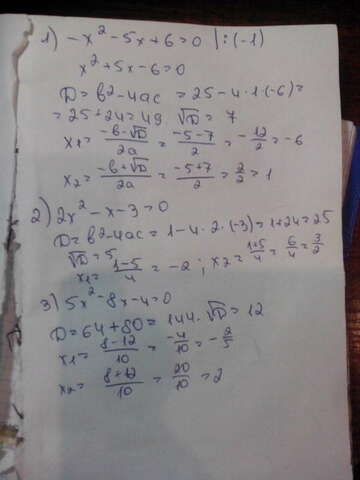 1) -x² - 5x + 6 = 0 | :(-1)
x² + 5x - 6 = 0
D = b² - 4ac = 25 - 4 · 1 · (-6) =
= 25 + 24 = 49 √D = 7
x₁ = (-b - √D)/2a = (-5 - 7)/2 = -12/2 = -6
x₂ = (-b + √D)/2a = (-5 + 7)/2 = 2/2 = 1
2) 2x² - x - 3 = 0
D = b² - 4ac = 1 - 4 · 2 · (-3) = 1 + 24 = 25
√D = 5
x₁ = (1 - 5)/4 = -2 ; x₂ = (1 + 5)/4 = 6/4 = 3/2
3) 5x² - 8x - 4 = 0
D = 64 + 80 = 144. √D = 12
x₁ = (8 - 12)/10 = -4/10 = -2/5
x₂ = (8 + 12)/10 = 20/10 = 2